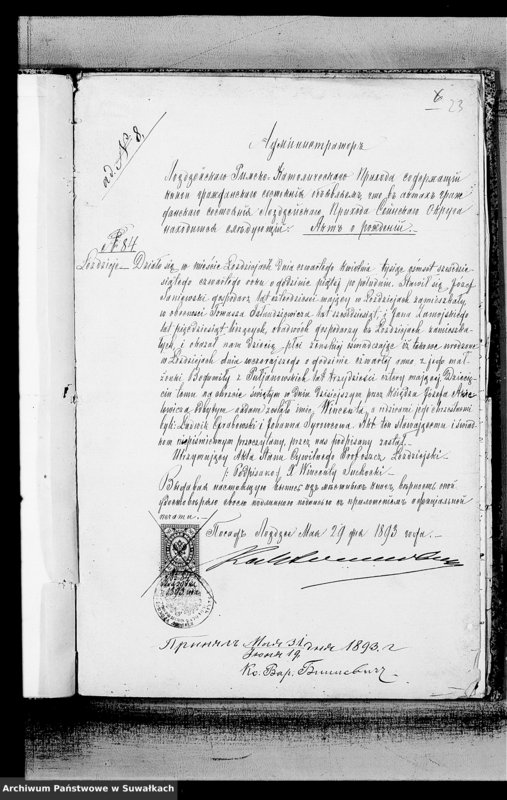 23
ad. № 8.
Администраторъ
Лоздзейского Римско-Католического Прихода содержащий
книги гражданского состояния объявляетъ, что въ актахъ граж-
данского состояния Лоздзейского Прихода Сейнского Округа
находится слѣдующій: Актъ о рожденіи.
№ 84
Łoździeje. Działo się w mieście Łoździejach dnia czwartego kwietnia tysiąc ośmset sześćdzie-
siątego czwartego roku o godzinie piątej po południu. Stawił się Józef
gospodarz lat czterdzieści mający w Łoździejach zamieszkały
w obecności Tomasza lat sześćdziesiąt, i Jana Zamojskiego
lat pięćdziesiąt liczących, obudwóch gospodarzy w Łoździejach zamieszka-
łych, i okazał nam dziecię płci żeńskiej oświadczając iż takowe urodzone
w Łoździejach dnia wczorajszego o godzinie czwartej rano z jego mał-
żonki Bogumiły z lat trzydzieści cztery mającej. Dziecię-
ciu temu na chrzcie świętym w dniu dzisiejszym przez Księdza Józefa
odbytym nadane zostało imię Wincenta, a rodzicami jego chrzestnemi
byli: Ludwik i Johanna. Akt ten stawającemu i świad-
kom niepiśmiennym przeczytany, przez nas podpisany został.
Utrzymujący Akta Stanu Cywilnego Proboszcz Łoździejski
(: Podpisano:) X Wincenty Suchocki.
Выдавая настоящую выпись изъ мѣстныхъ книгъ, вѣрность оной
удостовѣряю своею подлинною подписью съ приложеніемъ официальной
печати.
Посадъ Лоздзее Мая 29 дня 1893 года.
Принялъ Мая 31 дня 1893. г
Іюня 12
Кс. Вар.
Archiwum Państwowe w Suwałkach